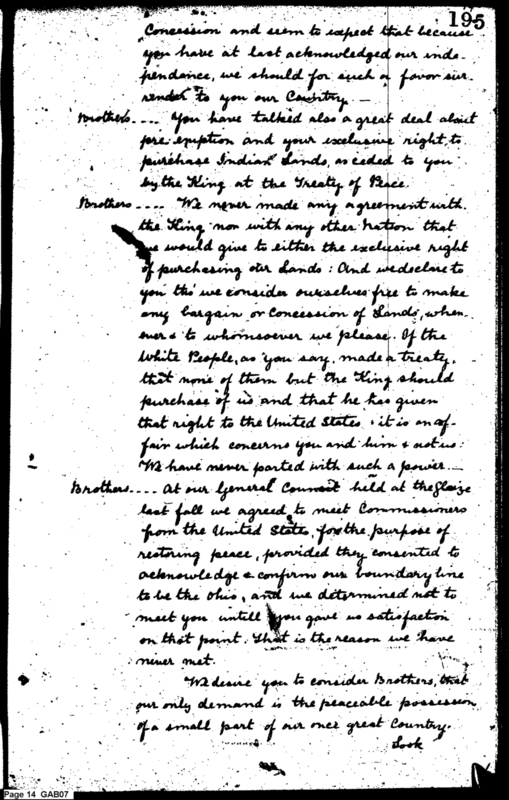 195
Concession and seem to expect that because
you have at last acknowledged our inde-
pendance, we should for such a favor sur-
render to you our Country. —
Brothers.... You have talked also a great deal about
pre emption and your exclusive right, to
purchase Indian Lands, as ceded to you
by the King at the Treaty of Peace.
Brothers.... We never made any agreement with
the King nor with any other Nation that
we would give to either the exclusive right
of purchasing our Lands: And we declare to
you tho' we consider ourselves free to make
any bargain or Concession of Lands, when-
ever & to whomsoever we please. If the
White People, as you say, made a treaty,
that none of them but the King should
purchase of us and that he has given
that right to the United States, it is an af-
fair which concerns you and him & not us:
We have never parted with such a power. —
Brothers.... At our General Council held at the Glaize
last fall we agreed to meet Commissioners
from the United States, for the purpose of
restoring peace, provided they consented to
acknowledge & confirm our boundary line
to be the Ohio, and we determined not to
meet you untill you gave us satisfaction
on that point. That is the reason we have
never met.
We desire you to consider Brothers, that
our only demand is the peaceable possession
of a small part of our once great Country.
Look
Page 14 GAB07